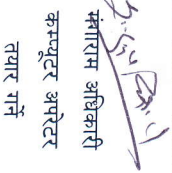 मंगाराम अधिकारी
कम्प्यूटर अपरेटर
तयार गर्ने